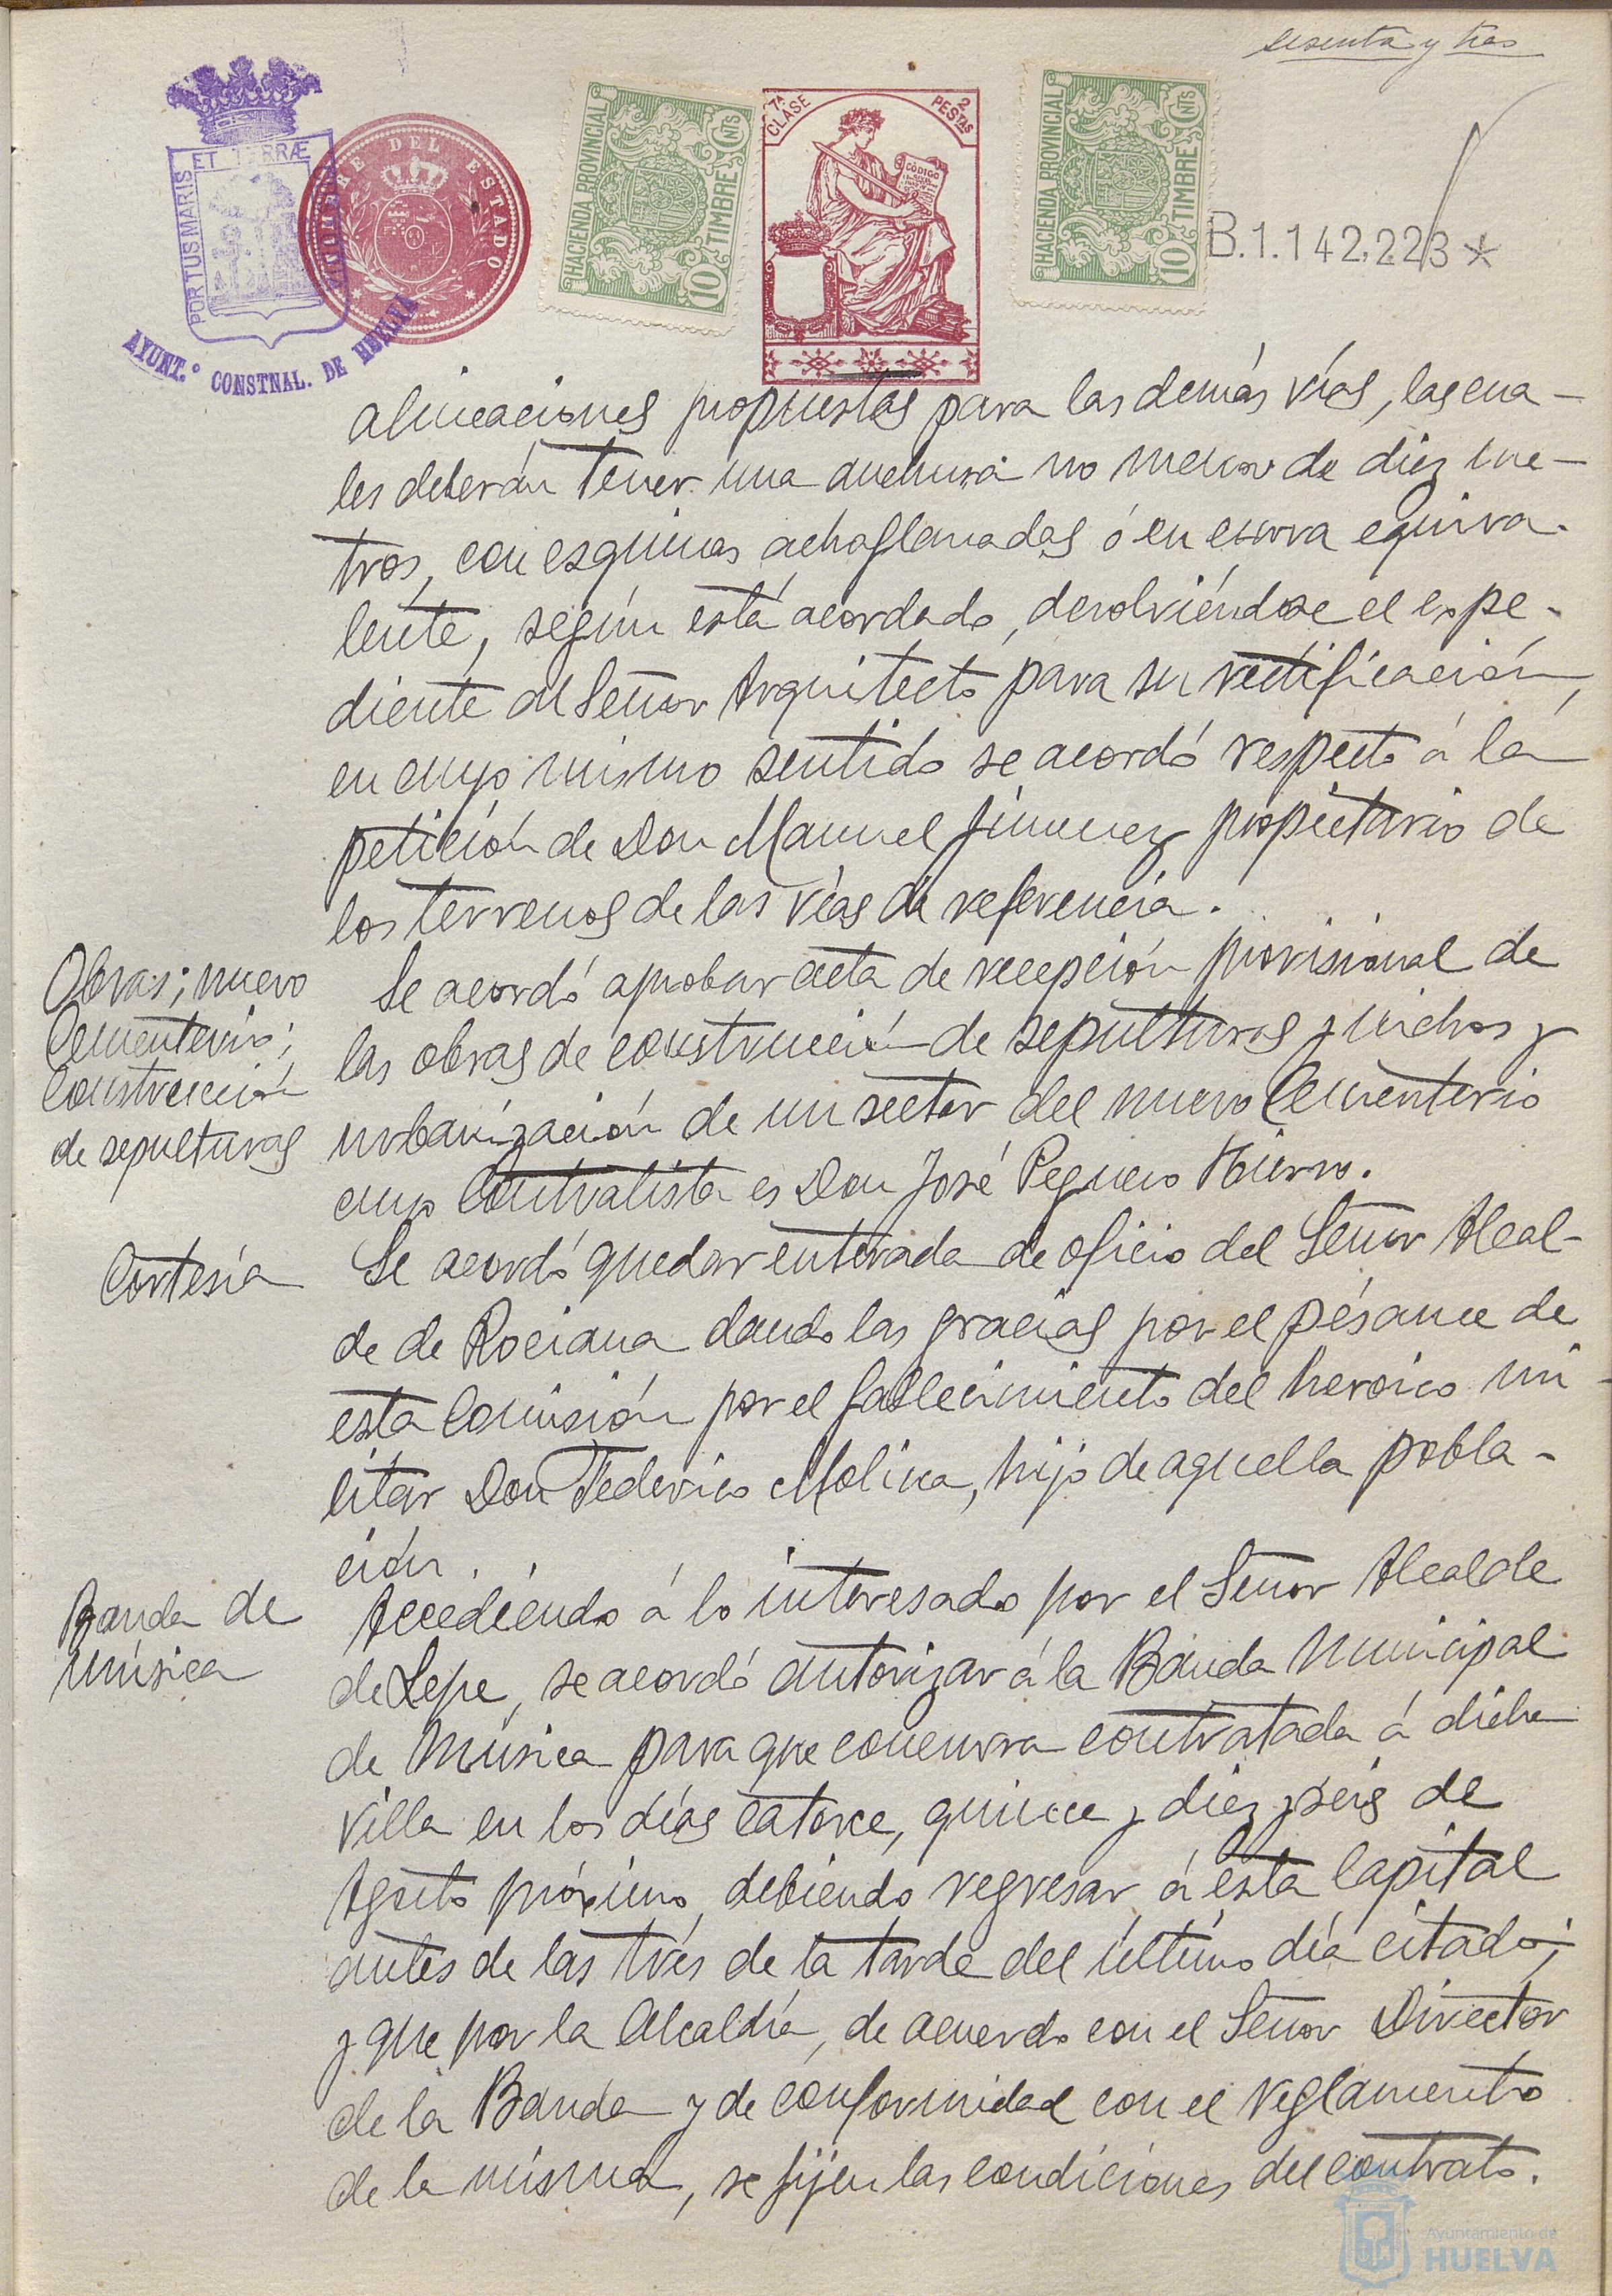 sesenta y tres
PORTUS MARIS ET TERRÆ
AYUNT.º CONSTNAL. DE HUELVA
TIMBRE DEL ESTADO
HACIENDA PROVINCIAL
10 CNTS
TIMBRE
7ª CLASE
2 PESTAS
CODIGO
HACIENDA PROVINCIAL
10 CNTS
TIMBRE
B.1.142.223*
alineaciones propuestas para las demás vías, las cua-
les deberán tener una anchura no menor de diez me-
tros, con esquinas achaflanadas ó en curva equiva-
lente, según está acordado, devolviéndose el expe-
diente al Señor Arquitecto para su rectificación,
en cuyo mismo sentido se acordó respecto á la
petición de Don Manuel Jimenez propietario de
los terrenos de las vías de referencia.
Obras; nuevo
Cementerio;
construcción
de sepulturas
Se acordó aprobar acta de recepción provisional de
las obras de construcción de sepulturas y nichos y
urbanización de un sector del nuevo Cementerio
cuyo Contratista es Don José Peguero Hierro.
Cortesía
Se acordó quedar enterada de oficio del Señor Alcal-
de de Rociana dando las gracias por el pésame de
esta Comisión por el fallecimiento del heroico mi-
litar Don Federico Molina, hijo de aquella pobla-
ción.
Banda de
música
Accediendo á lo interesado por el Señor Alcalde
de Lepe, se acordó autorizar á la Banda Municipal
de Música para que concurra contratada á dicha
villa en los días catorce, quince y diez y seis de
Agosto próximo, debiendo regresar á esta Capital
antes de las tres de la tarde del último día citado;
y que por la Alcaldía, de acuerdo con el Señor Director
de la Banda y de conformidad con el reglamento
de la misma, se fijen las condiciones del contrato.
Ayuntamiento de
HUELVA